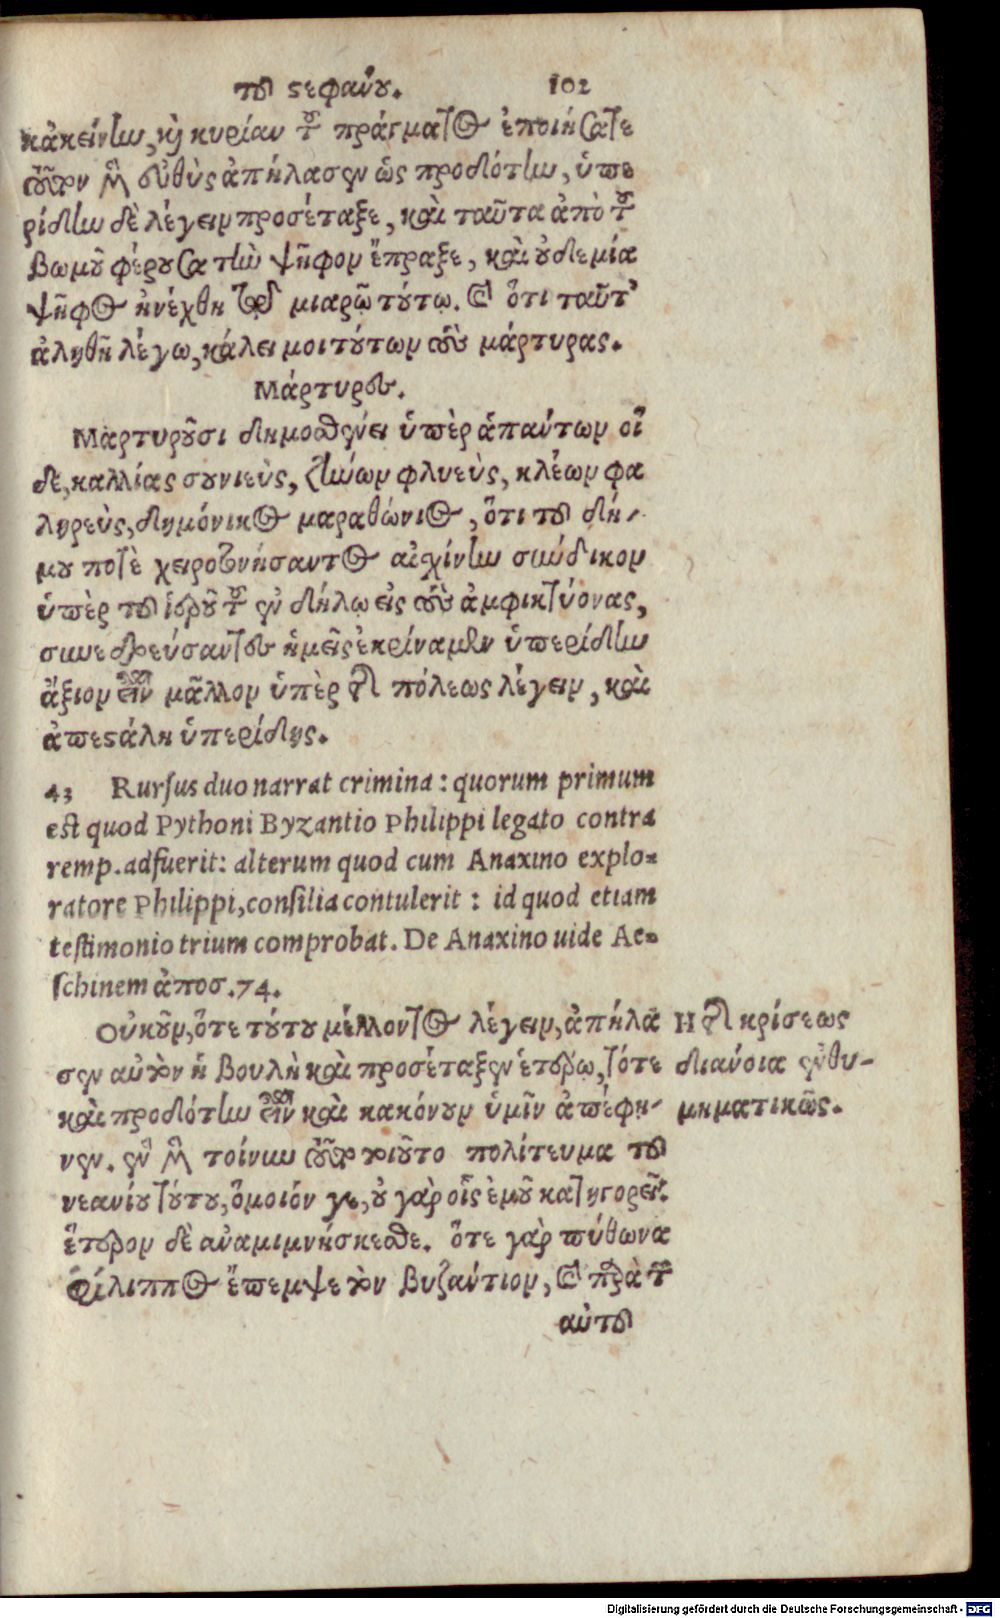 τοῦ στεφάνου. 102
κἀκείνην, καὶ κυρίαν τοῦ πράγματος ἐποιήσατε
τοῦτον μὲν εὐθὺς ἀπήλασεν ὡς προδότην, ὑπε
ρίδην δὲ λέγειν προσέταξε, καὶ ταῦτα ἀπὸ τοῦ
βωμοῦ φέρουσα τὴν ψῆφον ἔπραξε, καὶ οὐδεμία
ψῆφος ἠνέχθη τῷ μιαρῷ τούτῳ. καὶ ὅτι ταῦτ'
ἀληθῆ λέγω, κάλει μοι τούτων τοὺς μάρτυρας.
Μάρτυρες.
Μαρτυροῦσι δημοσθένει ὑπὲρ ἁπάντων οἵ
δε, καλλίας σουνιεὺς, ζήνων φλυεὺς, κλέων φα
ληρεὺς, δημόνικος μαραθώνιος, ὅτι τοῦ δή-
μου ποτὲ χειροτονήσαντος αἰσχίνην σύνδικον
ὑπὲρ τοῦ ἱεροῦ τοῦ ἐν δήλῳ εἰς τοὺς ἀμφικτύονας,
συνεδρεύσαντες ἡμεῖς ἐκρίναμεν ὑπερίδην
ἄξιον εἶναι μᾶλλον ὑπὲρ τῆς πόλεως λέγειν, καὶ
ἀπεστάλη ὑπερίδης.
43 Rursus duo narrat crimina: quorum primum
est quod Pythoni Byzantio Philippi legato contra
remp. adfuerit: alterum quod cum Anaxino explo=
ratore Philippi, consilia contulerit: id quod etiam
testimonio trium comprobat. De Anaxino uide Ae=
schinem ἀποσ. 74.
Οὐκοῦν, ὅτε τούτου μέλλοντος λέγειν, ἀπήλα
σεν αὐτὸν ἡ βουλὴ καὶ προσέταξεν ἑτέρῳ, τότε
καὶ προδότην εἶναι καὶ κακόνουν ὑμῖν ἀπέφη-
νεν. ἓν μὲν τοίνυν τοῦτο τοιοῦτο πολίτευμα τοῦ
νεανίου τούτου, ὅμοιόν γε, οὐ γὰρ οἷς ἐμοῦ κατηγορεῖ.
ἕτερον δὲ ἀναμιμνήσκεσθε. ὅτε γὰρ πύθωνα
Φίλιππος ἔπεμψε τὸν βυζάντιον, καὶ παρὰ τῶν
αὐτοῦ
Η τῆς κρίσεως
διάνοια ἐνθυ-
μηματικῶς.